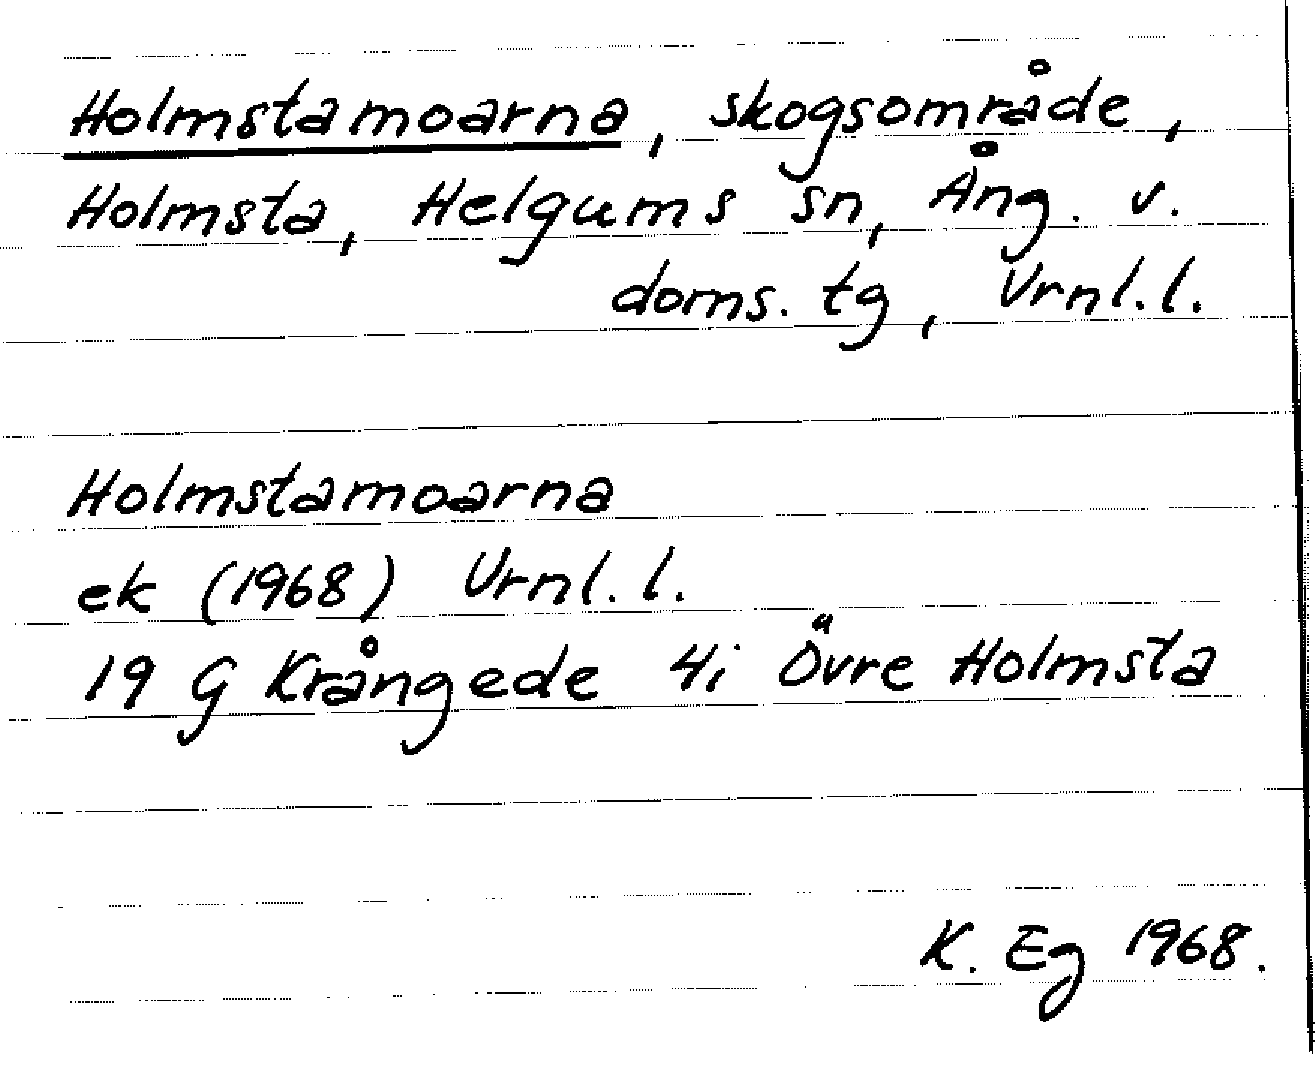 Holmstamoarna, skogsområde,
Holmsta, Helgums sn, Ång. v.
doms. tg, Vrnl. l.
Holmstamoarna
ek (1968) Vrnl. l.
19 G Krångede 4i Övre Holmsta
K. Eg 1968.